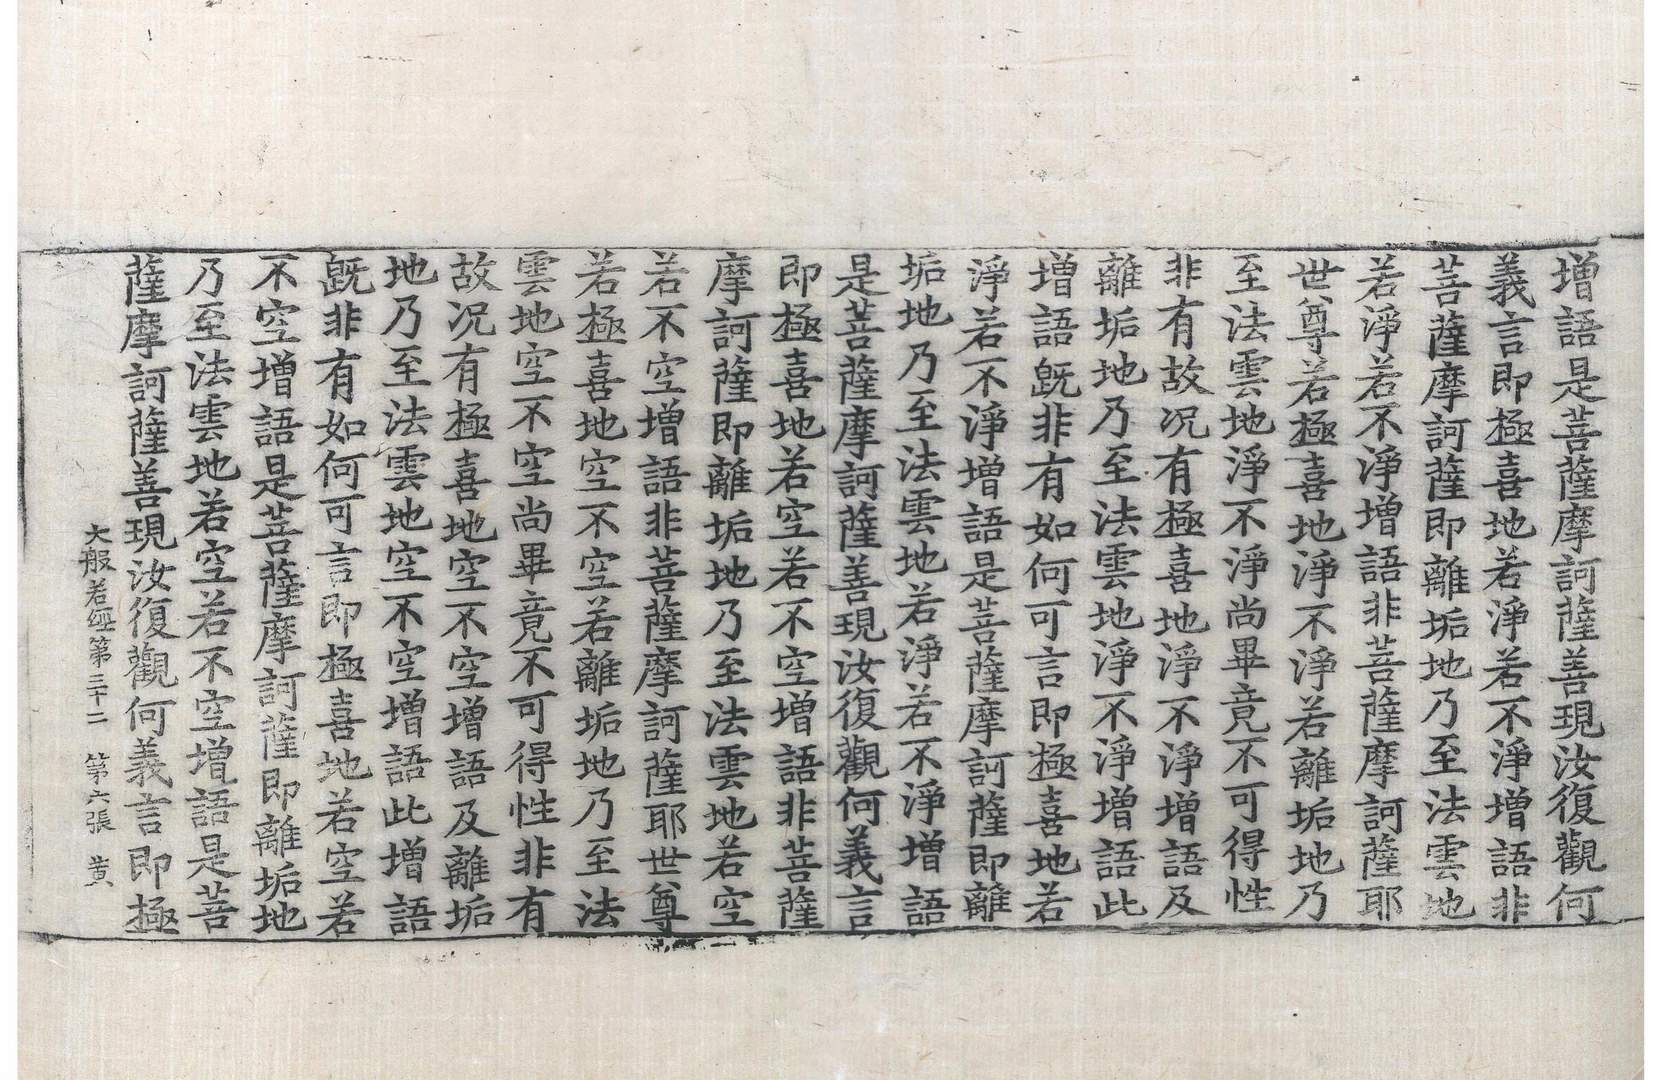 增語是菩薩摩訶薩善現汝復觀何
義言即極喜地若淨若不淨增語非
菩薩摩訶薩即離垢地乃至法雲地
若淨若不淨增語非菩薩摩訶薩耶
世尊若極喜地淨不淨若離垢地乃
至法雲地淨不淨尚畢竟不可得性
非有故况有極喜地淨不淨增語及
離垢地乃至法雲地淨不淨增語此
增語旣非有如何可言即極喜地若
淨若不淨增語是菩薩摩訶薩即離
垢地乃至法雲地若淨若不淨增語
是菩薩摩訶薩善現汝復觀何義言
即極喜地若空若不空增語非菩薩
摩訶薩即離垢地乃至法雲地若空
若不空增語非菩薩摩訶薩耶世尊
若極喜地空不空若離垢地乃至法
雲地空不空尚畢竟不可得性非有
故况有極喜地空不空增語及離垢
地乃至法雲地空不空增語此增語
旣非有如何可言即極喜地若空若
不空增語是菩薩摩訶薩即離垢地
乃至法雲地若空若不空增語是菩
薩摩訶薩善現汝復觀何義言即極
大般若經第三十二 第六張 黄